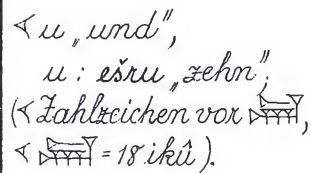 𒌋 u „und“,
u : ešru „zehn“;
(𒌋 Zahlzeichen vor 𒃷,
𒌋 𒃷 = 18 ikû).